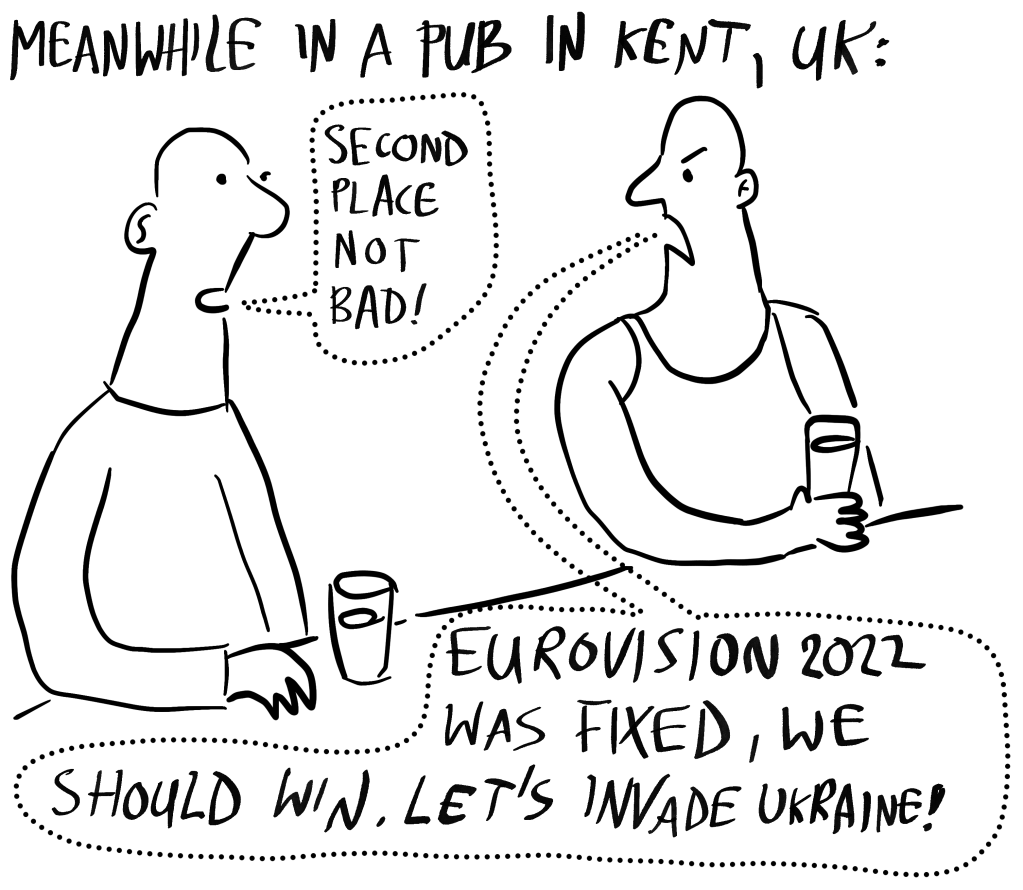 MEANWHILE IN A PUB IN KENT, UK:
SECOND
PLACE
NOT
BAD!
EUROVISION 2022
WAS FIXED, WE
SHOULD WIN. LET'S INVADE UKRAINE!